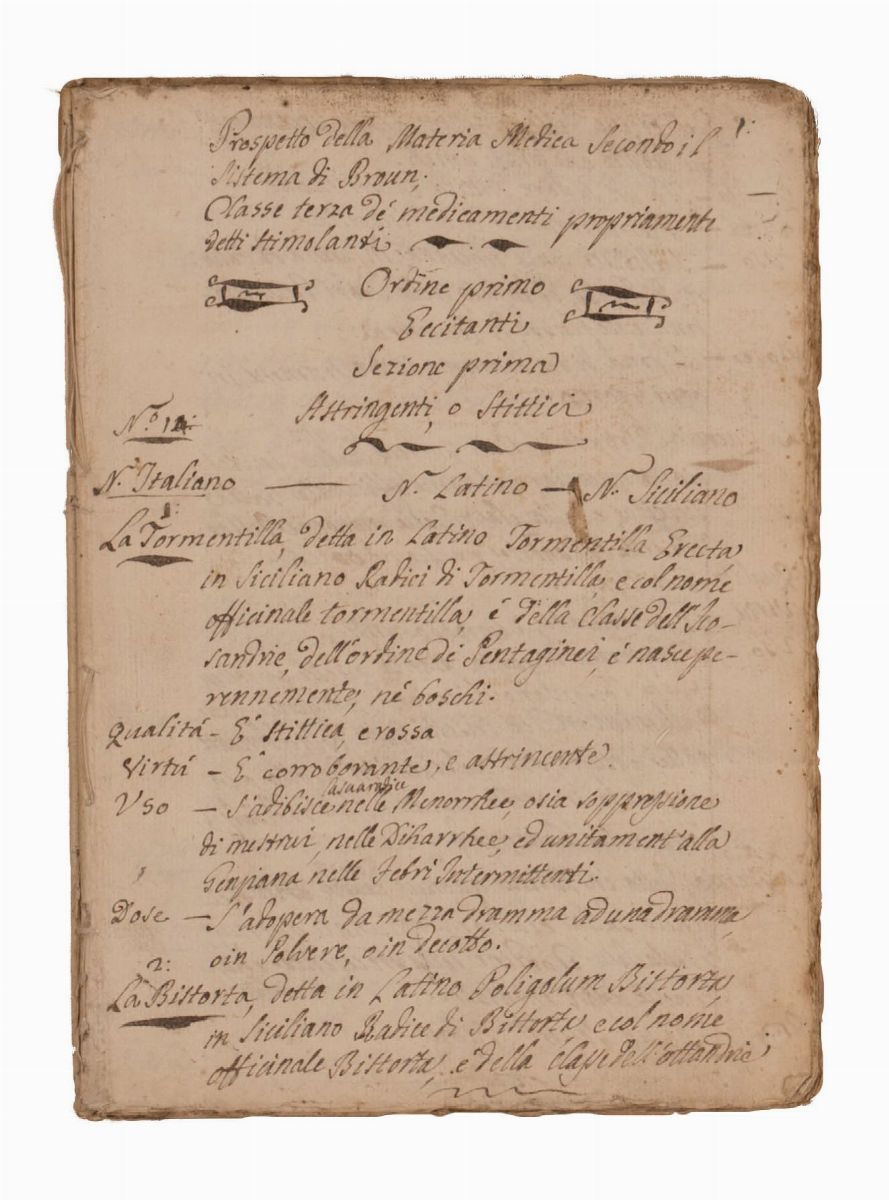 1:
Prospetto della Materia Medica Secondo il
Sistema di Broun,
Classe terza de' medicamenti propriamente
detti stimolanti
Ordine primo
Eccitanti
Sezione prima
Astringenti, o Stittici
N.º
N. Italiano — N. Latino — N. Siciliano
1:
La Tormentilla, detta in Latino Tormentilla Erecta
in Siciliano Radici di Tormentilla, e col nome
officinale tormentilla, é della classe dell'Ico-
sandrie, dell'ordine di Pentaginei, é nasce pe-
rennemente, né boschi.
Qualitá - E' stittica, e rossa
Virtú - E' corroborante, e astrincente.
la sua radice
Uso - S'adibisce nelle Menorrhee, osia soppressione
di mestrui, nelle Diharrhee, ed unitament'alla
Genziana nelle Febri Intermittenti.
Dose - S'adopera da mezza dramma ad una dramma,
o in Polvere, o in decotto.
2:
La Bistorta, detta in Latino Poligolum Bistorta,
in Siciliano Radice di Bistorta, e col nome
officinale Bistorta, é della classe dell'ottandrie